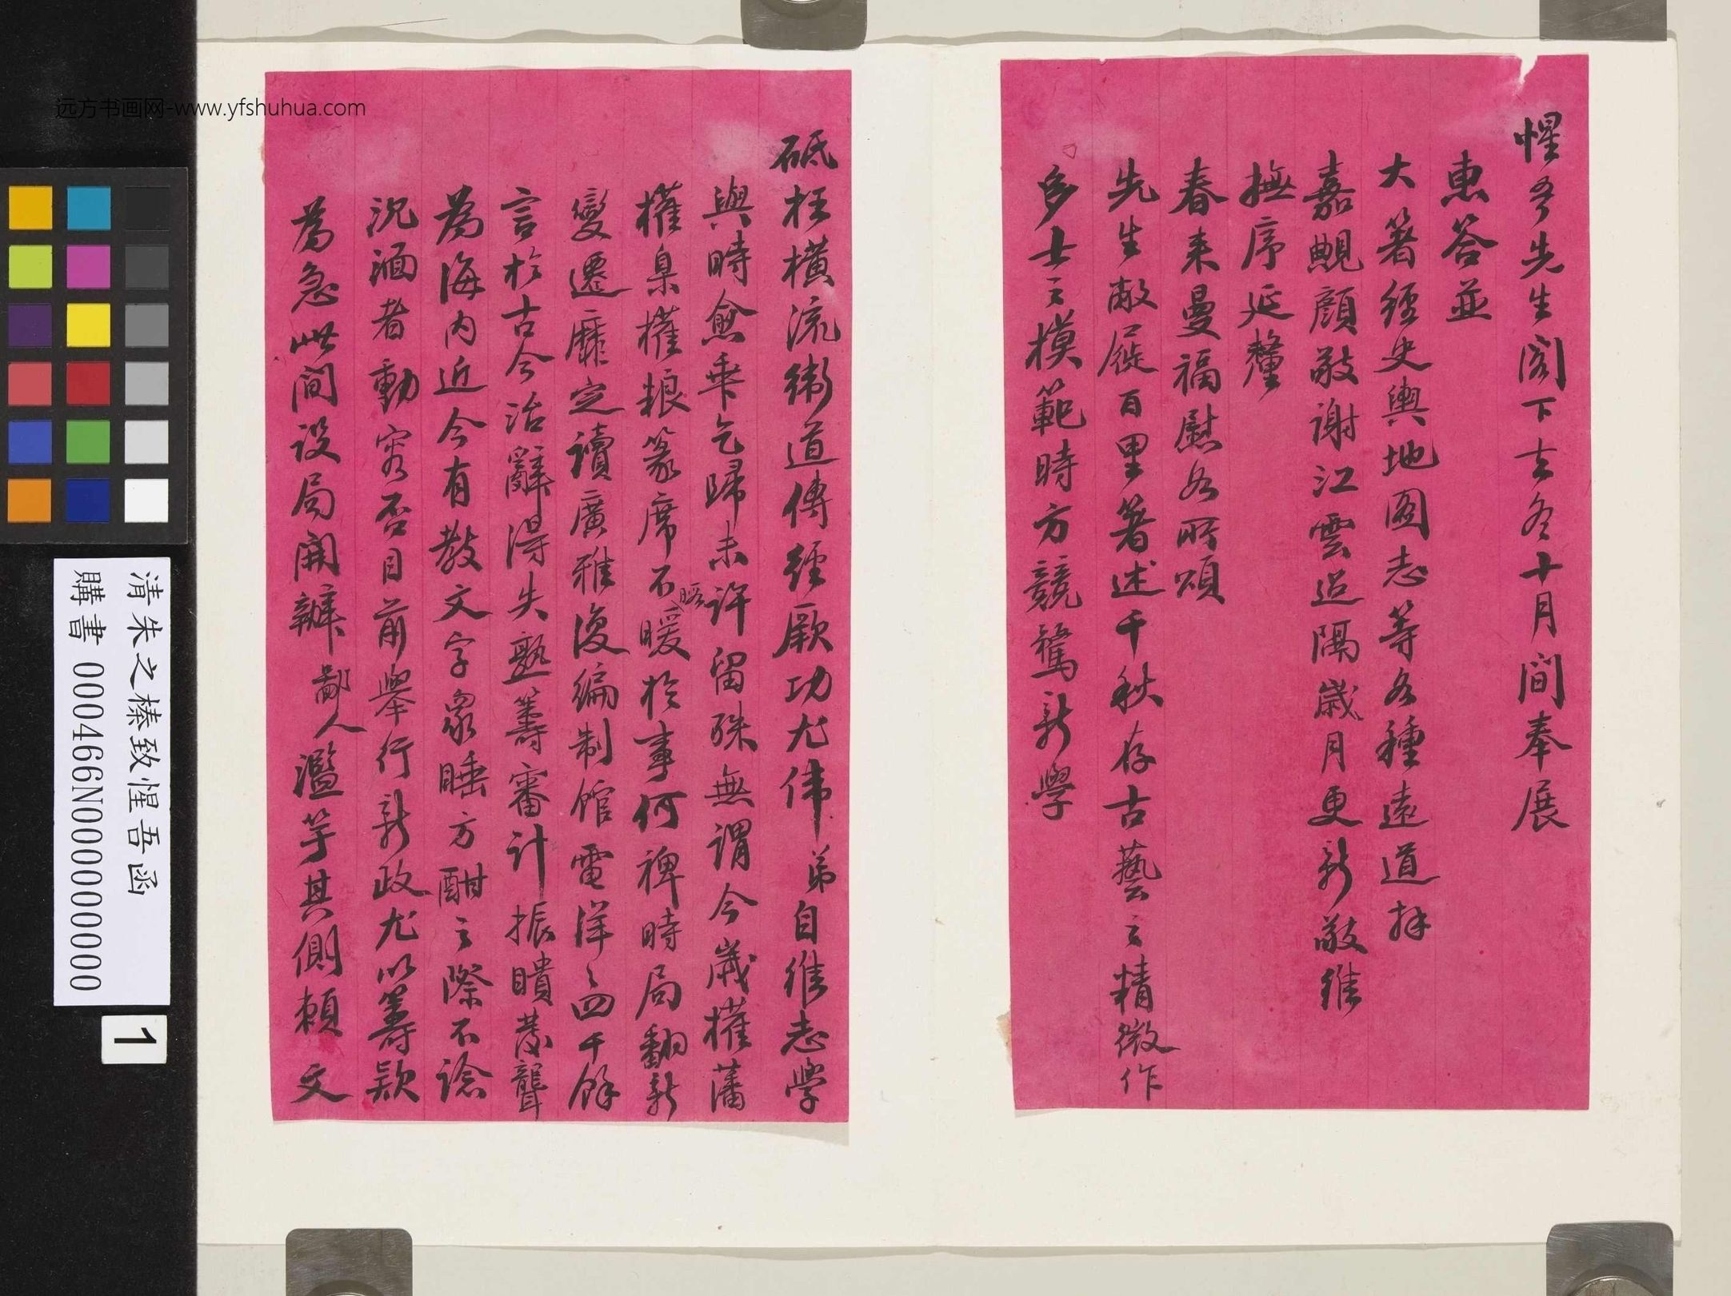 惺吾先生阁下去冬十月间奉展
惠答並
大箸經史輿地圖志等各種遠道拜
嘉貺顔敬謝江雲迢隔歲月更新敬維
撫序延釐
春来曼福慰如所頌
先生敝屣百里著述千秋存古藝之精微作
多士之模範時方競騖新學
砥柱橫流衛道傳經厥功尤偉弟自維志學
與時愈乖乞歸未許留殊無謂今歲權藩
權臬權糧篆席不暖於事何裨時局翻新
暖
變遷靡定讀廣雅復編制館電洋洋四千餘
言於古今治辭得失熟籌審計振聵發聾
為海内近今有數文字衆睡方酣之際不諗
沉湎者動容否目前舉行新政尤以籌款
為急此間设局開辦鄙人濫竽其側賴文
清朱之榛致惺吾函
購書 000466N000000000
1
远方书画网-www.yfshuhua.com